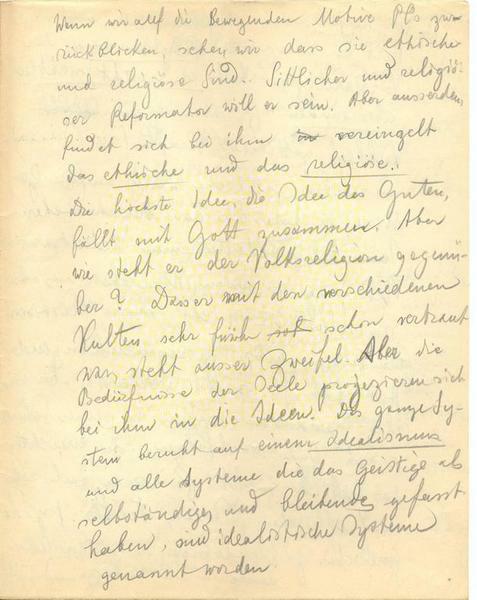 Wenn wir auf die Bewegenden Motive Pls zu-
rück blicken, sehen wir dass sie ethische
und religiöse sind. Sittlicher und religiö-
ser Reformator will er sein. Aber ausserdem
findet sich bei ihm vereingelt
das ethische und das religiöse.
Die höchste Idee, die Idee des Guten,
fällt mit Gott zusammen. Aber
wie steht er der Volksreligion gegenü-
ber? Dass er mit den verschiedenen
Kulten sehr früh schon vertraut
war, steht ausser Zweifel. Aber die
Bedürfnisse der Seele projezieren sich
bei ihm in die Ideen. Das ganze Sy-
stem beruht auf einem Idealismus
und alle Systeme die das Geistige als
selbständiges und bleibendes gefasst
haben, sind idealistische Systeme
genannt worden